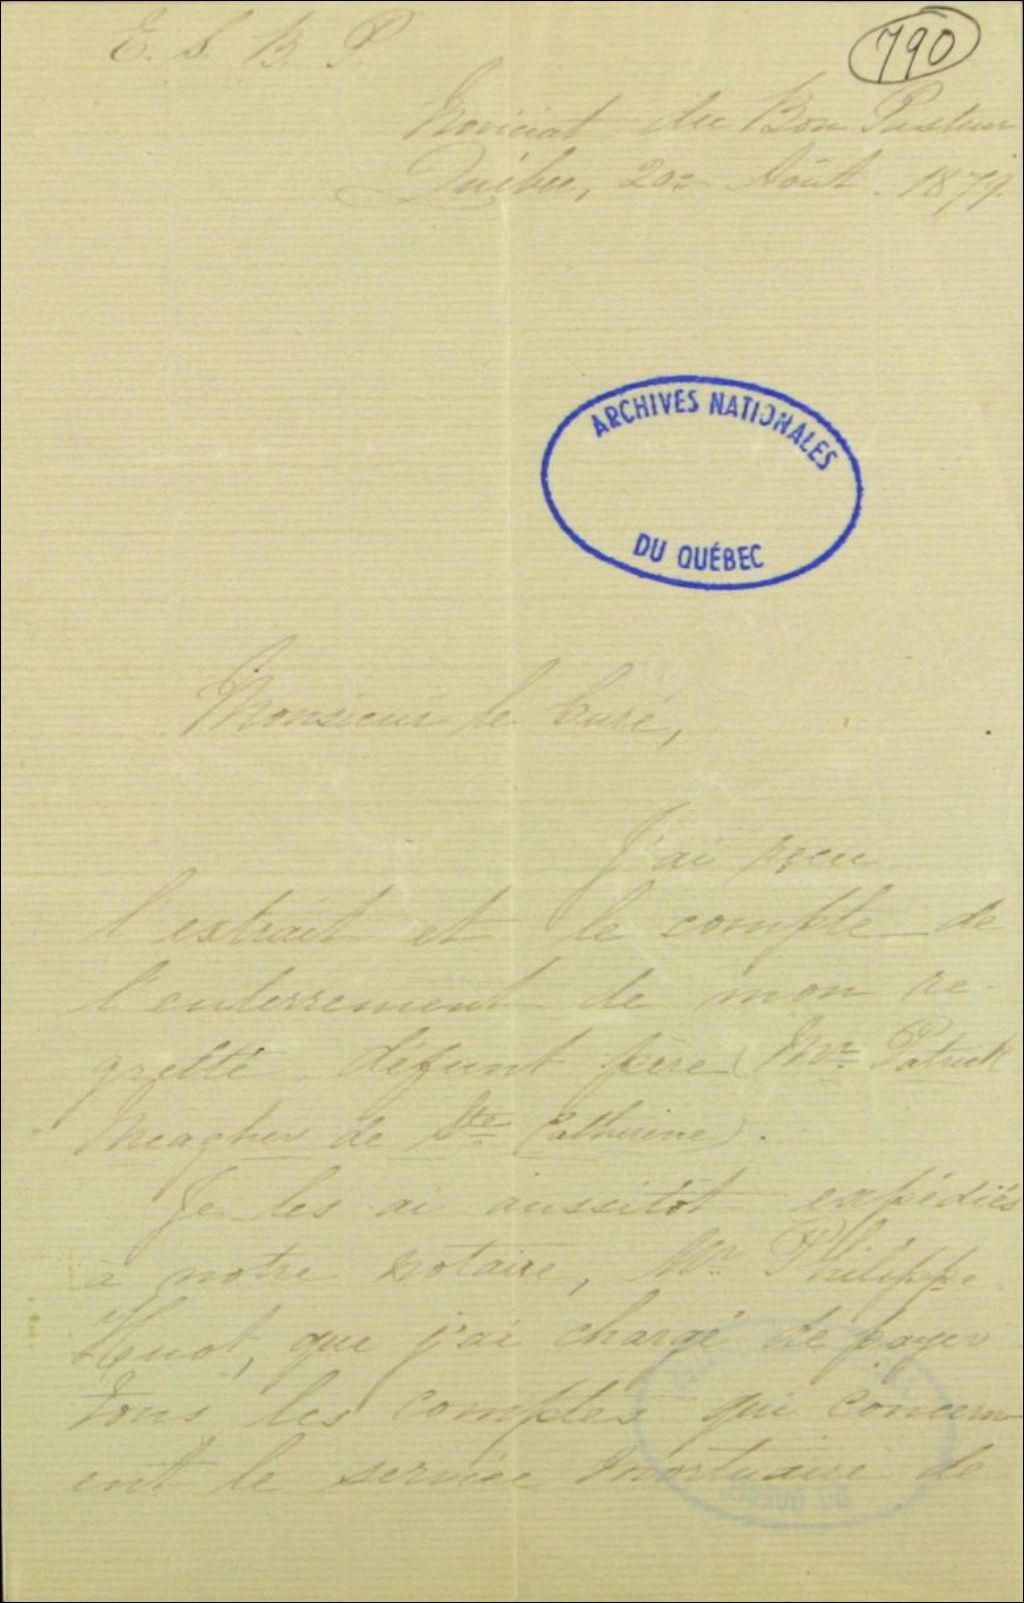 E. S. B. P.
790
Noviciat du Bon Pasteur
Québec, 20= Août. 1879.
ARCHIVES NATIONALES
DU QUÉBEC
Monsieur le Curé,
J'ai reçu
l'extrait et le compte de
l'enterrement de mon re-
gretté défunt père (Mr. Patrick
Meagher de Ste Catherine).
Je les ai aussitôt expédiés
à notre notaire, Mr. Philippe
Huot, que j'ai chargé de payer
tous les comptes qui concern
ent le service mortuaire de